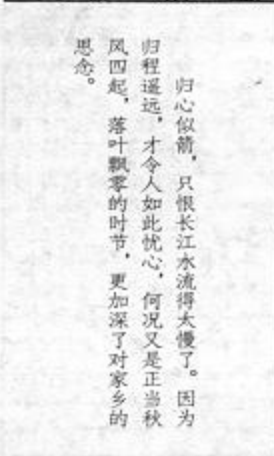 归心似箭，只恨长江水流得太慢了。因为
归程遥远，才令人如此忧心，何况又是正当秋
风四起，落叶飘零的时节，更加深了对家乡的
思念。